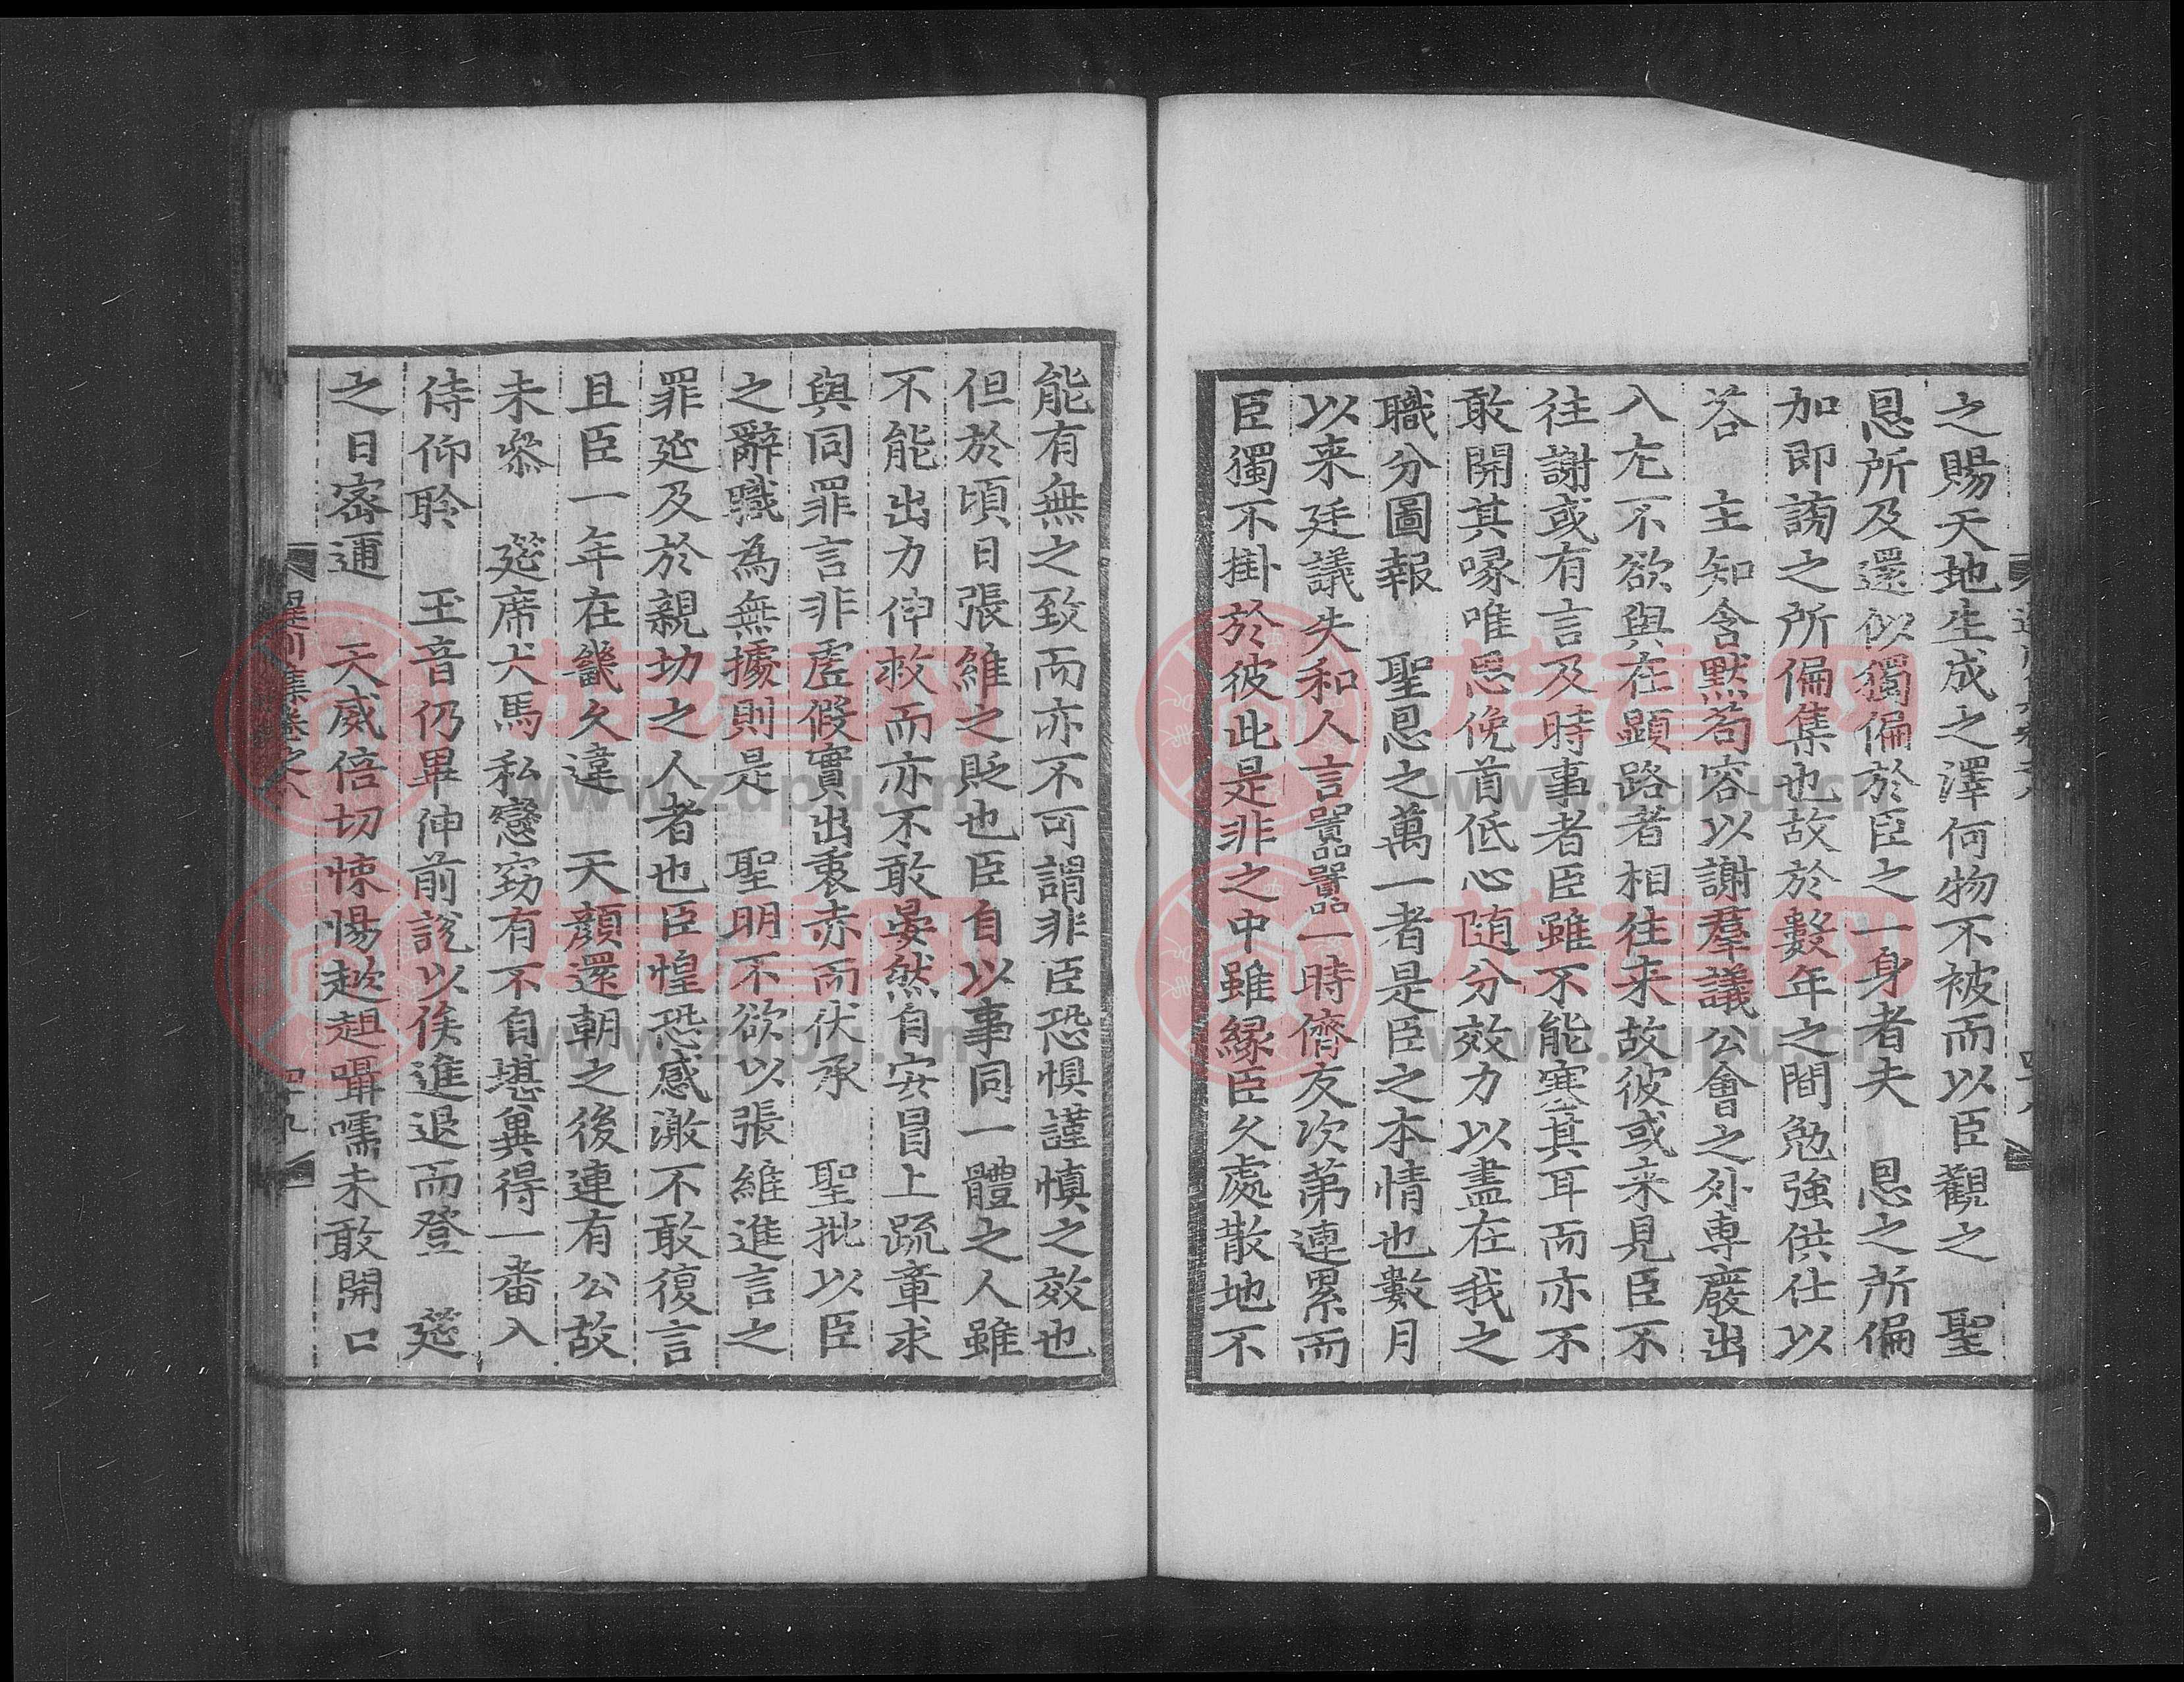 之賜天地生成之澤何物不被而以臣觀之　聖
恩所及還似獨偏於臣之一身者夫　恩之所偏
加即謗之所偏集也故於數年之間勉強供仕以
荅　主知含默苟容以謝羣議公會之外專廢出
入尤不欲與在顯路者相往来故彼或来見臣不
往謝或有言及時事者臣雖不能塞其耳而亦不
敢開其喙唯思俛首低心随分效力以盡在我之
職分圖報　聖恩之萬一者是臣之本情也數月
以来廷議失和人言嚚嚚一時儕友次第連累而
臣獨不掛於彼此是非之中雖緣臣久處散地不
能有無之致而亦不可謂非臣恐惧謹慎之效也
但於頃日張維之貶也臣自以事同一體之人雖
不能出力伸救而亦不敢晏然自安冒上疏章求
與同罪言非虛假實出衷赤而伏承　聖批以臣
之辭職為無據則是　聖明不欲以張維進言之
罪延及於親切之人者也臣惶恐感激不敢復言
且臣一年在畿久違　天顔還朝之後連有公故
未叅　筵席犬馬私戀窃有不自堪冀得一番入
侍仰聆　玉音仍畢伸前說以俟進退而登　筵
之日密邇　天威倍切悚惕趑趄囁嚅未敢開口
集卷之八
四十九
族谱网
www.zupu.cn
族谱网
www.zupu.cn
族谱网
www.zupu.cn
族谱网
www.zupu.cn